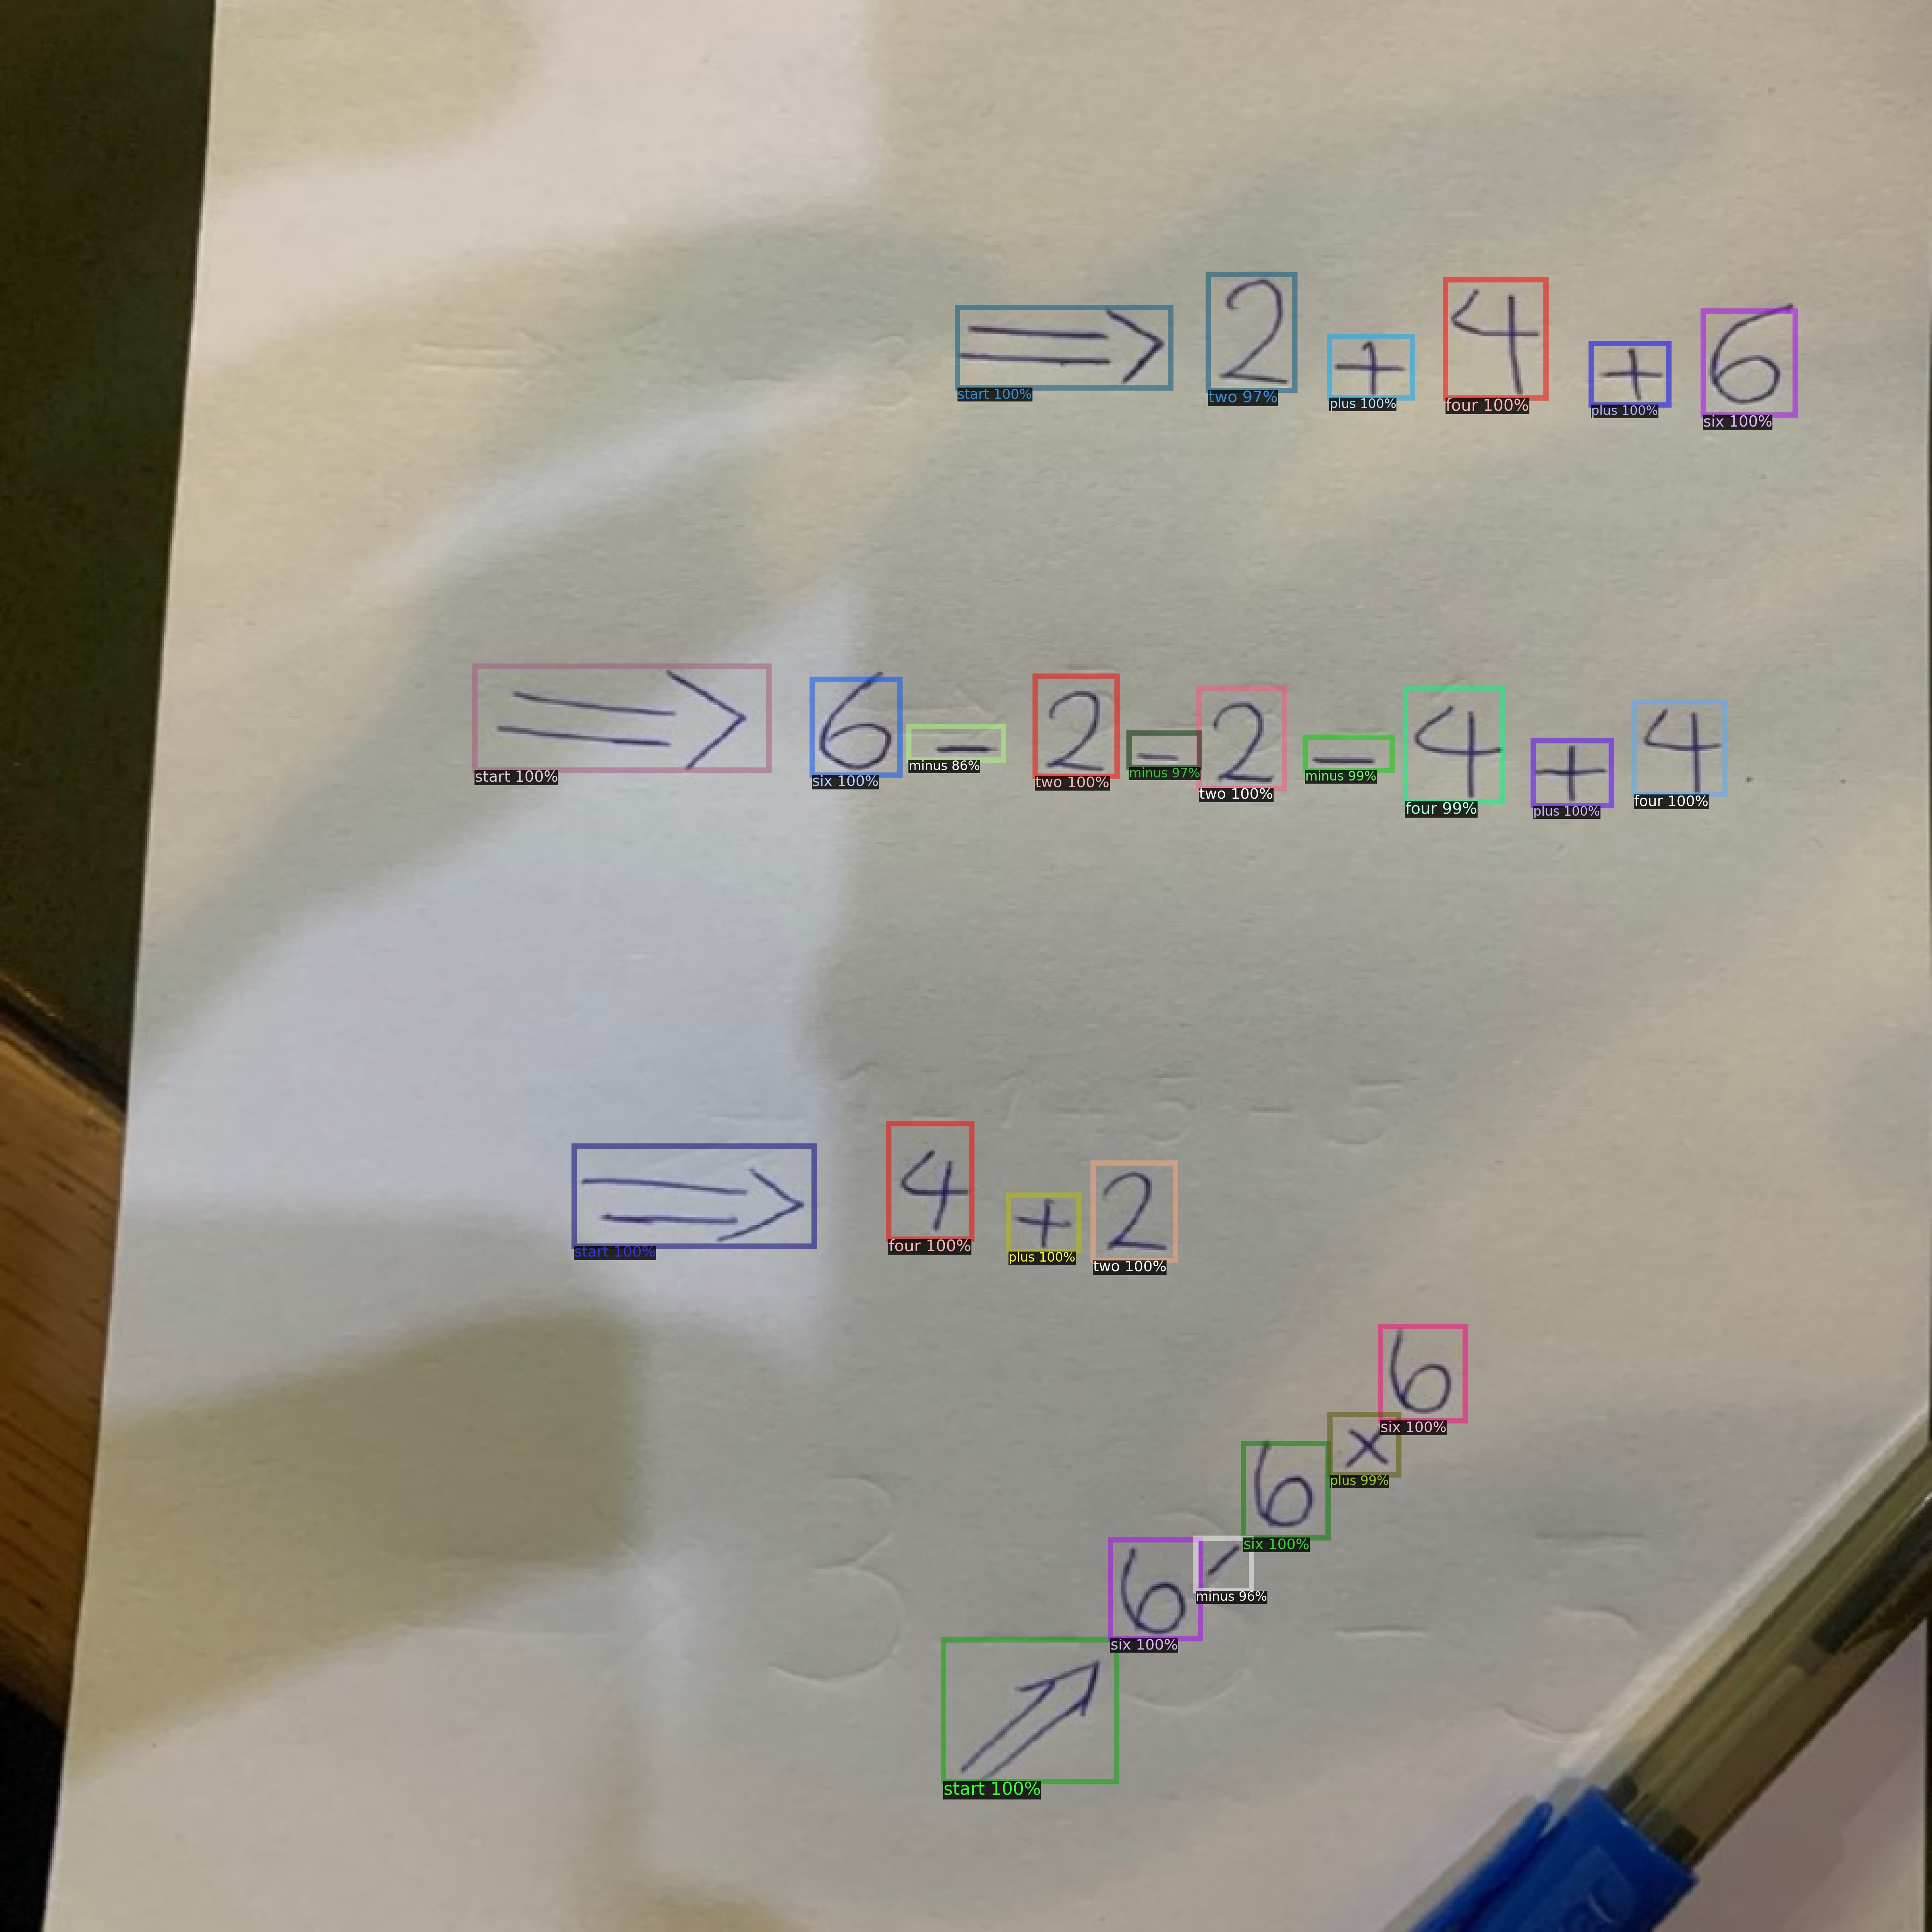 ⇒ 2 + 4 + 6
start 100% two 97% plus 100% four 100% plus 100% six 100%
⇒ 6 - 2 - 2 - 4 + 4
start 100% six 100% minus 86% two 100% minus 97% two 100% minus 99% four 99% plus 100% four 100%
⇒ 4 + 2
start 100% four 100% plus 100% two 100%
⇒ 6 - 6 + 6
start 100% six 100% minus 96% six 100% plus 99% six 100%